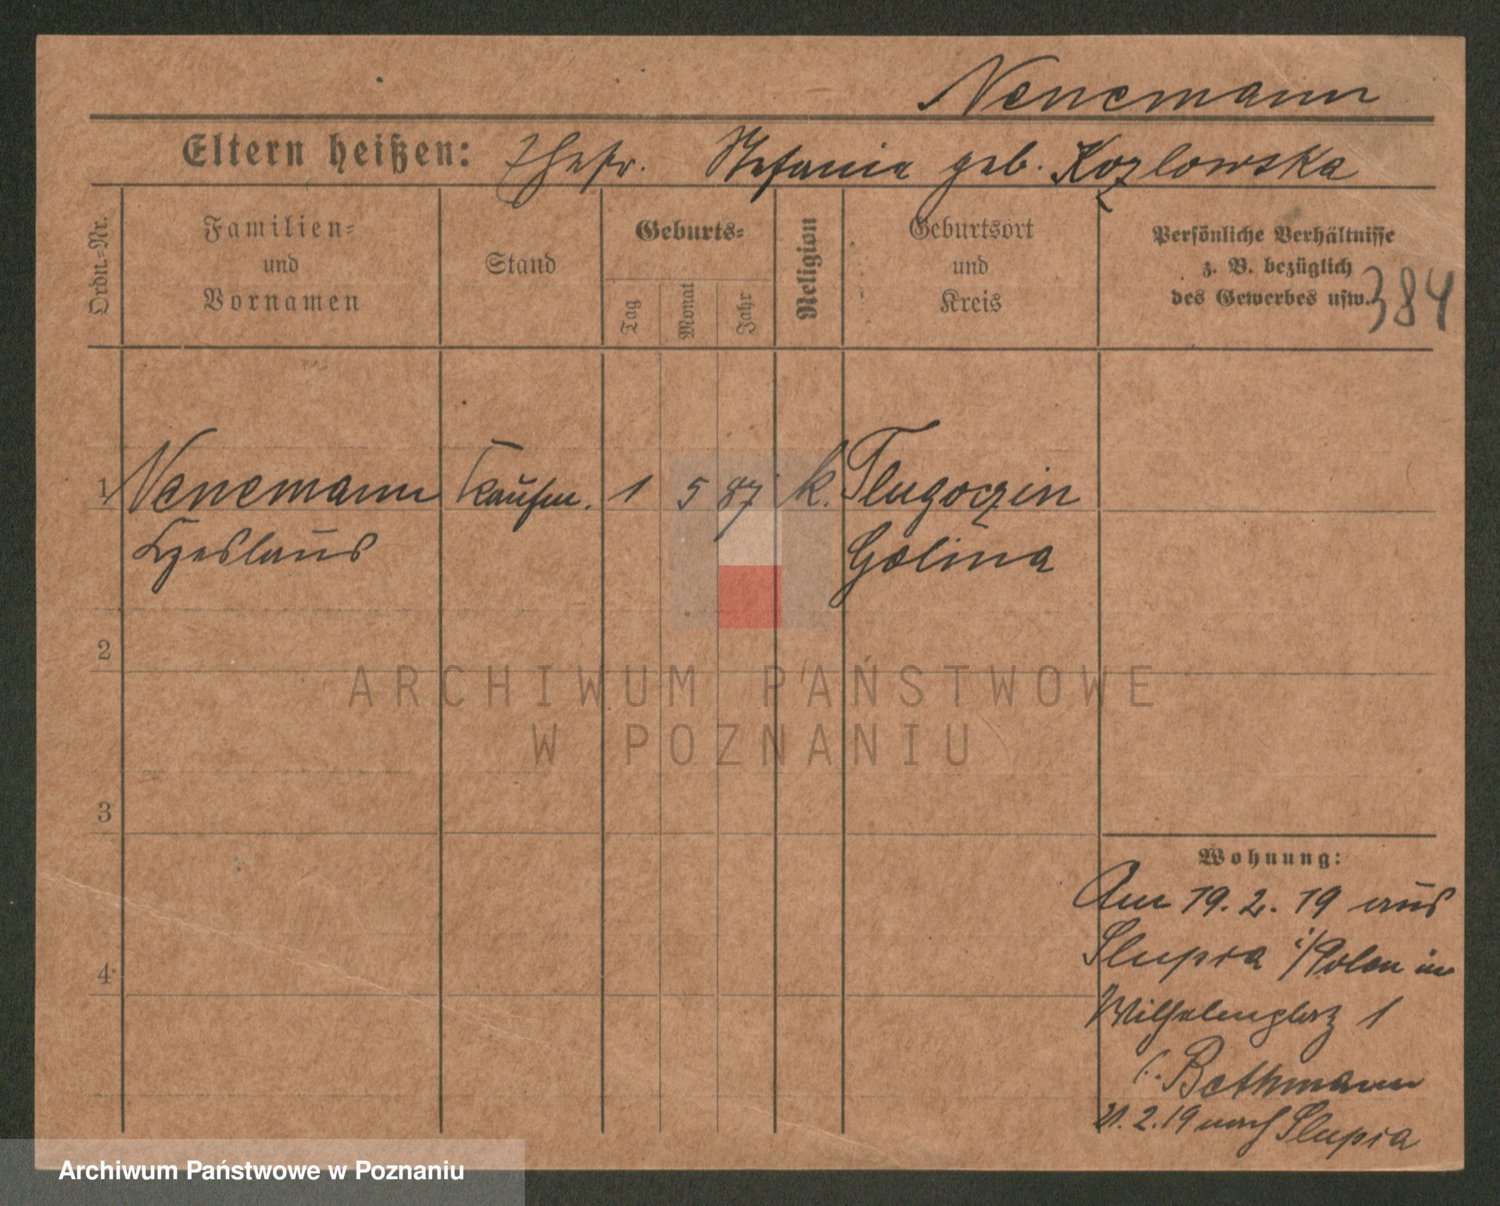 Nenemann
Eltern heißen: Ehefr. Stefania geb. Kozlowska
Ordn.-Nr.
Familien-
und
Vornamen
Stand
Geburts-
Tag
Monat
Jahr
Religion
Geburtsort
und
Kreis
Persönliche Verhältnisse
z. B. bezüglich
des Gewerbes usw.
384
1 Nenemann Kaufm. 1 5 87 k.
Czeslaus Golina
2
ARCHIWUM PAŃSTWOWE
W POZNANIU
3
Wohnung:
Am 19.2.19 aus
Slupia i/Polen in
Wilhelmplatz 1
b. Bethmann
21.2.19 nach Slupia
4
Archiwum Państwowe w Poznaniu